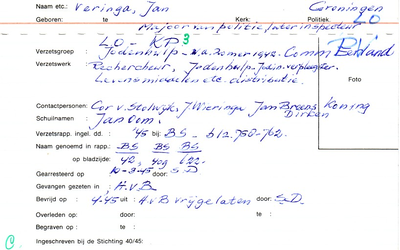 Naam etc.: Veringa, Jan Groningen
Geboren: te Kerk: Politiek LO
Majoor van politie/later inspecteur
LO - KP 3
Verzetsgroep : Jodenhulp - v.a. zomer 1942. Comm
Verzetswerk : Rechercheur, Jodenhulp, Jodin. verpleegster.
Levensmiddelen etc. distributie.
Foto
Contactpersonen: Cor v. Stolwijk, J Wieringa Jan Broens, Koning
Schuilnamen : Jan Oom. Dirken
Verzetsrapp. ingel. dd. : '45 bij: BS - 612.750-762.
Naam genoemd in rapp.: BS BS BS
op bladzijde: 42, 409 622.
Gearresteerd op : 10-3-45 door: S.D
Gevangen gezeten in : H.v.B
Bevrijd op : 4.45 uit : H v B vrijgelaten door: S.D.
Overleden op: door: te :
Begraven op : te :
Ingeschreven bij de Stichting 40/45:
C